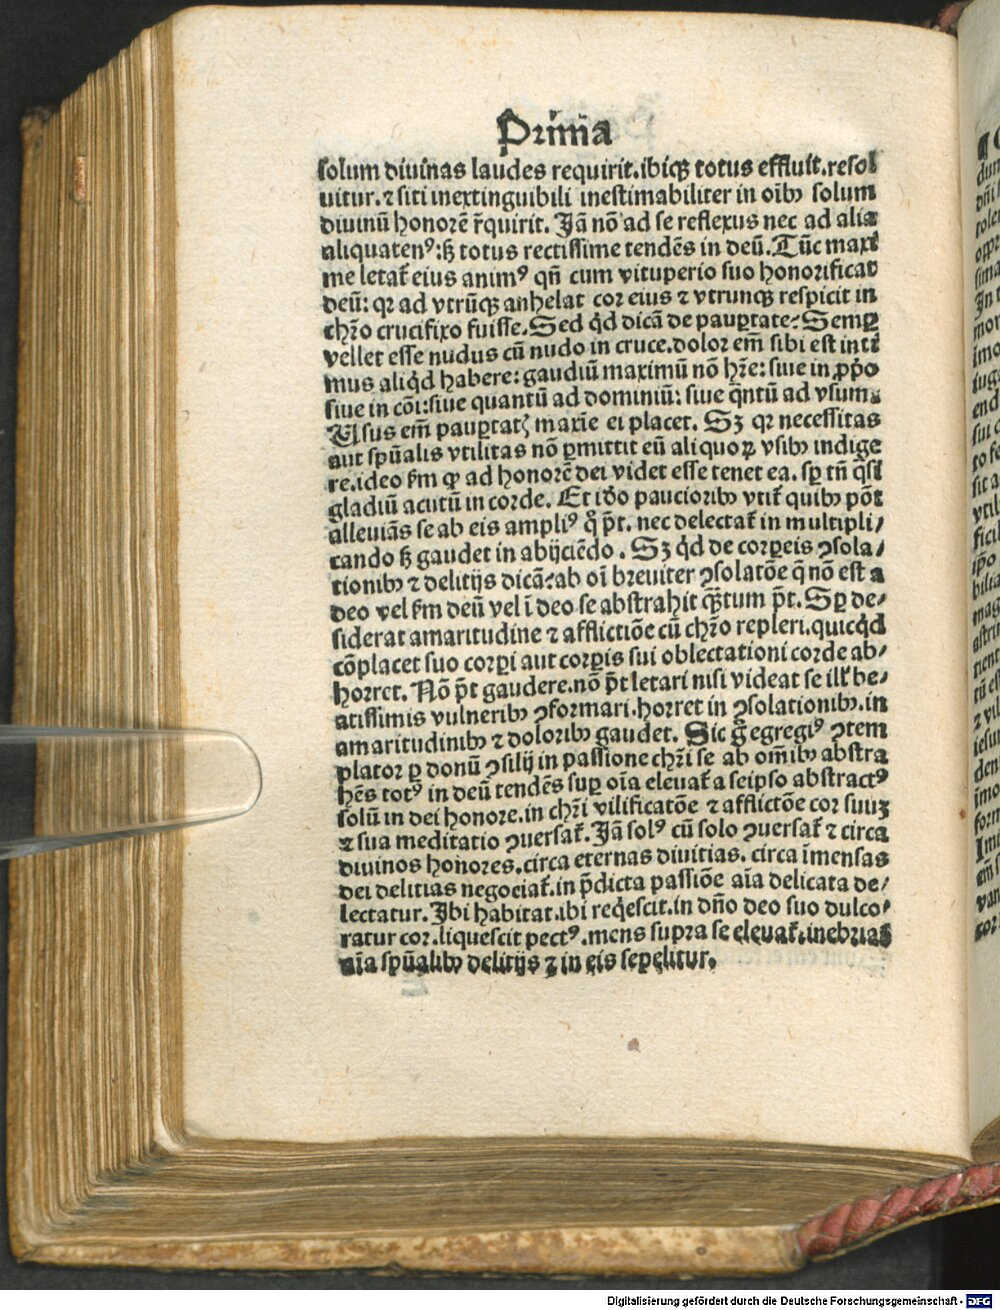 Prima
solum diuinas laudes requirit.ibiqꝫ totus effluit.resol
uitur.⁊ siti inextinguibili inestimabiliter in oībꝰ solum
diuinū honorē r̄quirit. Jā nō ad se reflexus nec ad alia
aliquatenꝰ:sꝫ totus rectissime tendēs in deū. Tūc maxi
me letat̄ eius animꝰ qn̄ cum vituperio suo honorificat
deū: qꝛ ad vtrūqꝫ anhelat cor eius ⁊ vtrunqꝫ respicit in
chr̄o crucifixo fuisse. Sed qͥd dicā de paupꝑtate: Semꝑ
vellet esse nudus cū nudo in cruce.dolor em̄ sibi est inti
mus aliqͥd habere: gaudiū maximū nō hr̄e: siue in ꝓpͥo
siue in cōi:siue quantū ad dominiū: siue qͣntū ad vsum.
Usus em̄ pauꝑtatꝭ maxīe ei placet. Sꝫ qꝛ necessitas
aut spūalis vtilitas nō ꝑmittit eū aliquoꝝ vsibꝰ indige
re.ideo ẜm qꝙ ad honorē dei videt esse tenet ea. sꝑ tn̄ qͣsi
gladiū acutū in corde. Et iōo paucioribꝰ vtit̄ quibꝰ pōt
alleuiās se ab eis ampliꝰ qͦ p̄t. nec delectat̄ in multipli/
cando sꝫ gaudet in abijciēdo . Sꝫ qͥd de corꝑeis ꝯsola/
tionibꝰ ⁊ delitijs dicā:ab oī breuiter ꝯsolatōe q̄ nō est a
deo vel ẜm deū vel ī deo se abstrahit qͣꝫtum p̄t. Sꝑ de/
siderat amaritudine ⁊ afflictiōe cū chr̄o repleri.quicqͥd
cōplacet suo corꝑi aut corꝑis sui oblectationi corde ab/
horret. Nō p̄t gaudere.nō p̄t letari nisi videat se ill̄ be/
atissimis vulneribꝰ ꝯformari.horret in ꝯsolationibꝰ.in
amaritudinibꝰ ⁊ doloribꝰ gaudet. Sic g̊ egregiꝰ ꝯtem
plator ꝑ donū ꝯsilij in passione chr̄i se ab om̄ibꝰ abstra
hēs totꝰ in deū tendēs suꝑ oīa eleuat̄ a seipso abstractꝰ
solū in dei honore.in chr̄i vilificatōe ⁊ afflictōe cor suuꝫ
⁊ sua meditatio ꝯuersat̄. Jā solꝰ cū solo ꝯuersat̄ ⁊ circa
diuinos honores.circa eternas diuitias. circa īmensas
dei delitias negociat̄.in p̄dicta passiōe aīa delicata de/
lectatur. Jbi habitat.ibi reqͥescit.in dn̄o deo suo dulco/
ratur cor.liquescit pectꝰ.mens supra se eleuat̄.inebriat̄
aīa spūalibꝰ delitijs ⁊ in eis sepelitur.
Digitalisierung gefördert durch die Deutsche Forschungsgemeinschaft - DFG